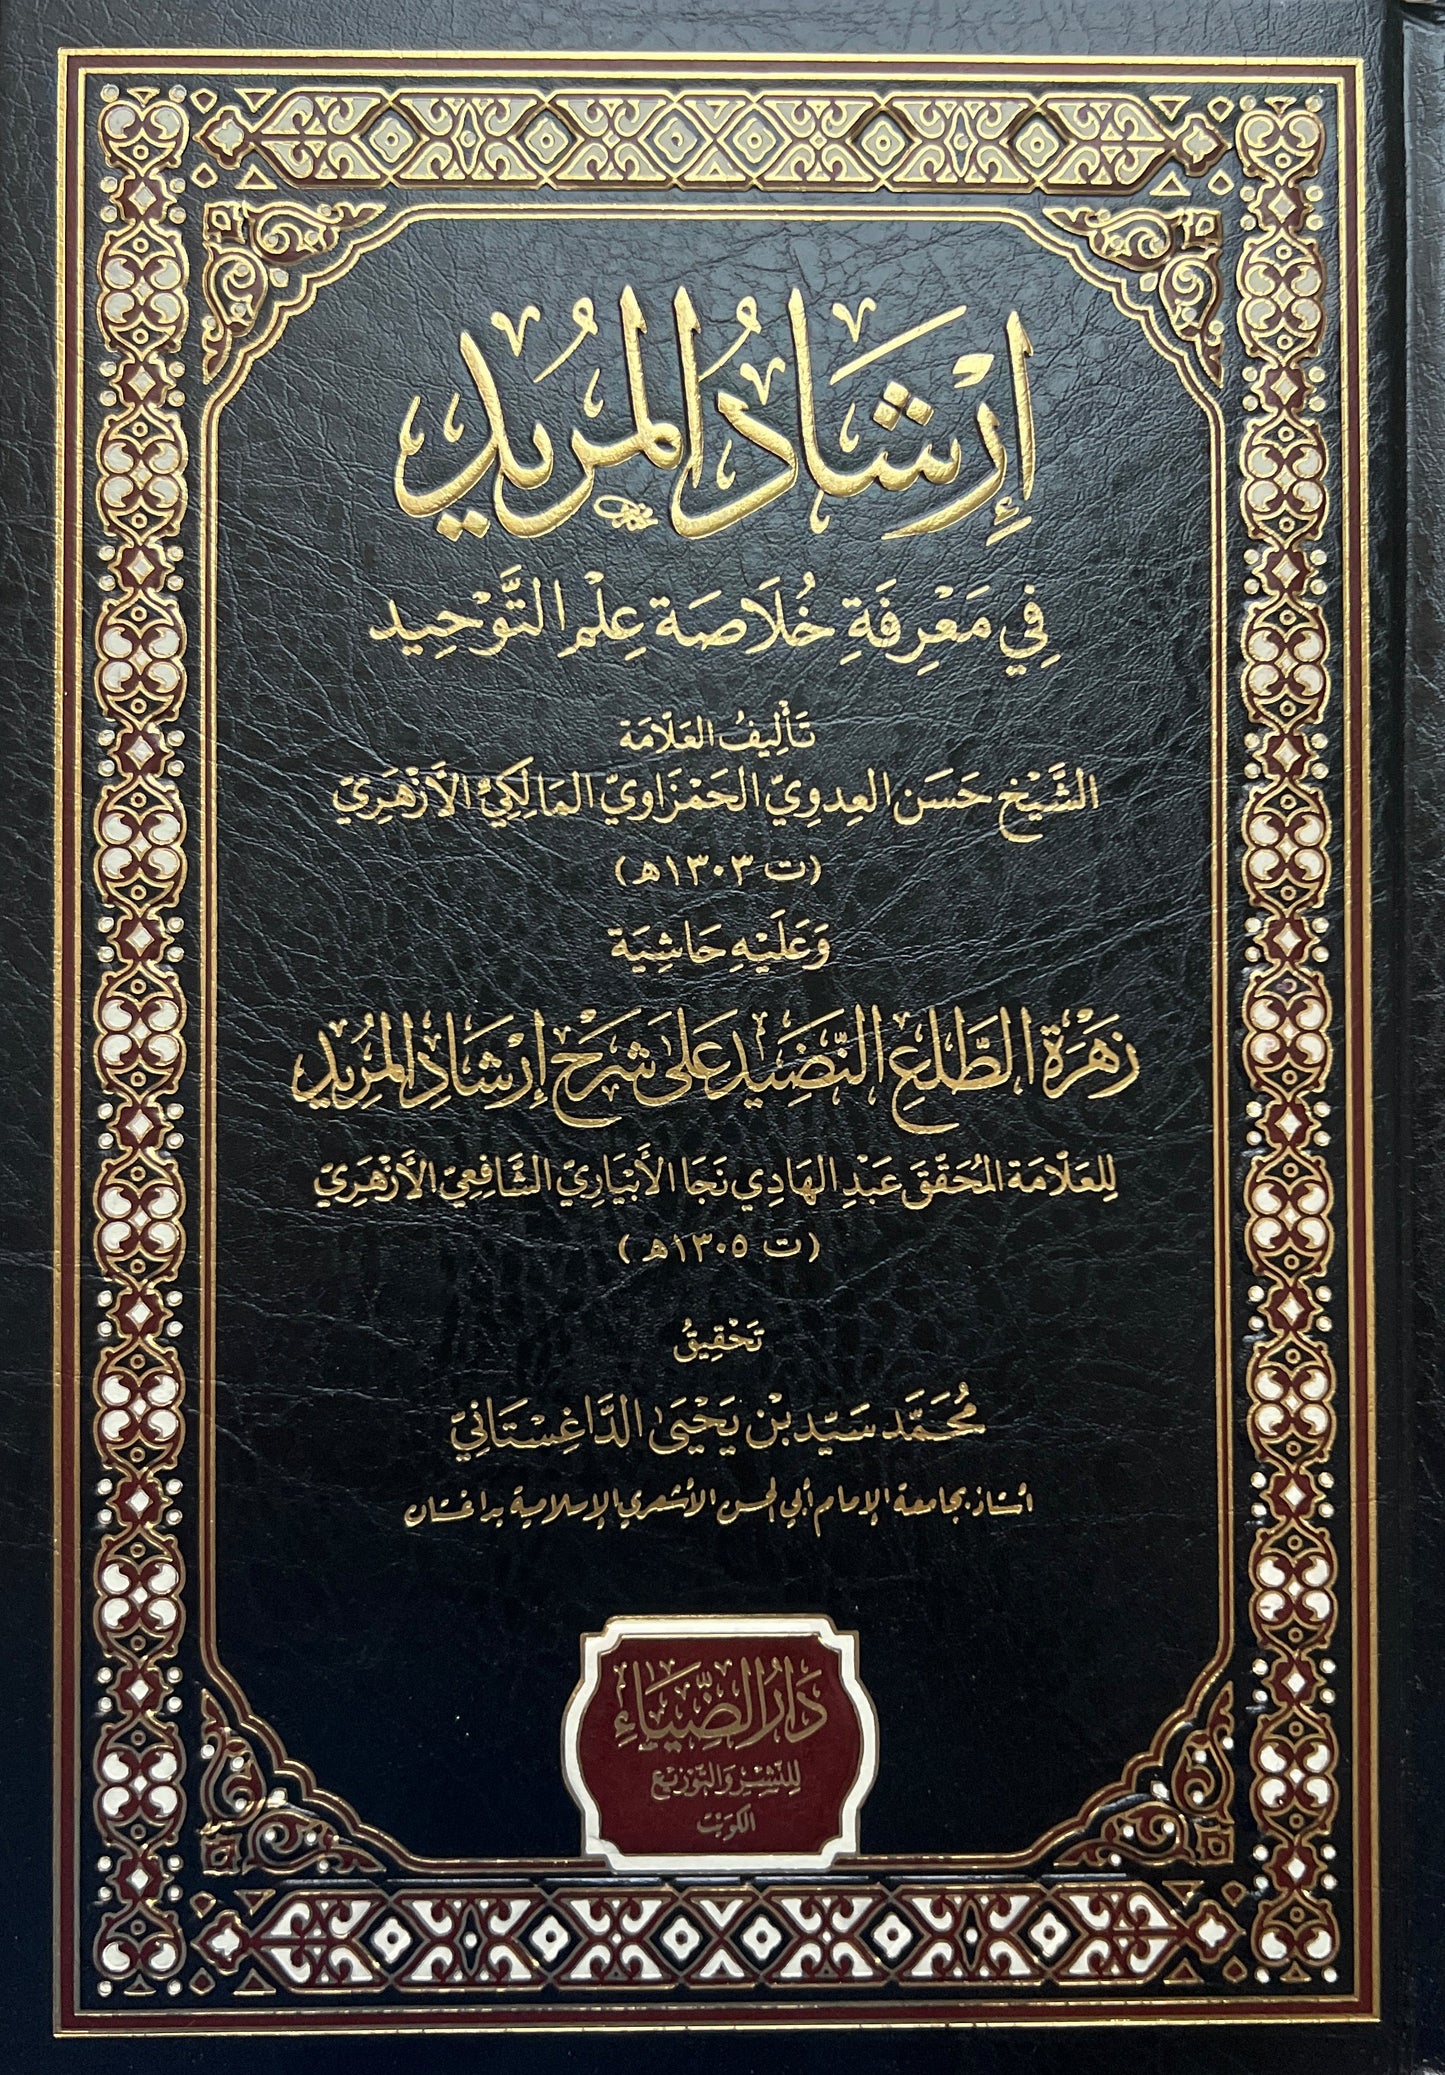 إِرْشَادُ المُرِيدِ
فِي مَعْرِفَةِ خُلَاصَة عِلْمِ التَّوْحِيدِ
تَأْلِيفُ العَلَّامَة
الشَّيْخِ حَسَن العِدوِيّ الحَمْزَاوِيّ المَالِكِيِّ الأَزْهَرِيّ
(ت ١٣٠٣هـ)
وَعَلَيْهِ حَاشِيَة
زَهْرَة الطَّلعِ النَّضِيدِ عَلَى شَرْحِ إِرْشَادِ المُرِيدِ
لِلعَلَّامَة المُحَقِّقِ عَبْدِ الهَادِي نَجَا الأَبْيَارِيّ الشَّافِعِيّ الأَزْهَرِيّ
(ت ١٣٠٥هـ)
تَحْقِيقُ
مُحَمَّد سَيِّد بْن يَحْيَى الدَّاغِسْتَانِيّ
أستاذ بجامعة الإمام أبي الحسن الأشعري الإسلامية بداغستان
دَارُ الضِّيَاءِ
لِلنَّشْرِ وَالتَّوْزِيعِ
الكويت